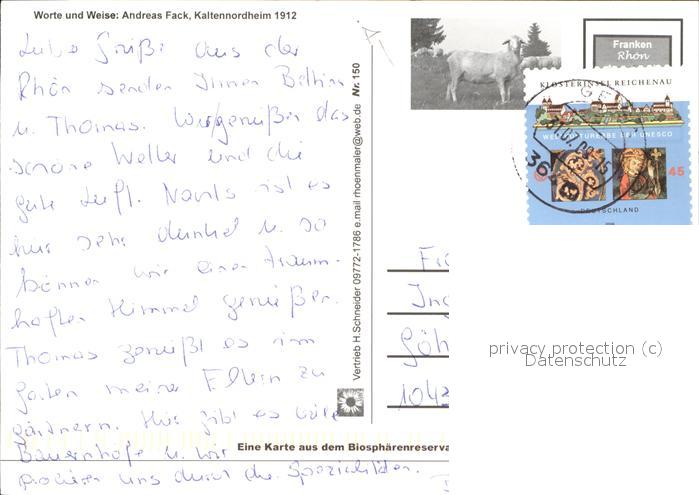 Worte und Weise: Andreas Fack, Kaltennordheim 1912
Liebe Grüße aus der
Rhön senden Ihnen Bettina
u. Thomas. Wir genießen das
schöne Wetter und die
gute Luft. Nachts ist es
hier sehr dunkel u. so
können wir einen traum-
haften Himmel genießen.
Thomas genießt es im
Garten meiner Eltern zu
gärtnern. Hier gibt es viele
Bauernhöfe u. wir
probieren uns durch die Spezialitäten.
Eine Karte aus dem Biosphärenreserva
Vertrieb H.Schneider 09772-1786 e.mail rhoenmaler@web.de Nr. 150
Franken
Rhön
KLOSTERINSEL REICHENAU
WELTKULTURERBE DER UNESCO
45
DEUTSCHLAND
36
Göh
privacy protection (c)
Datenschutz